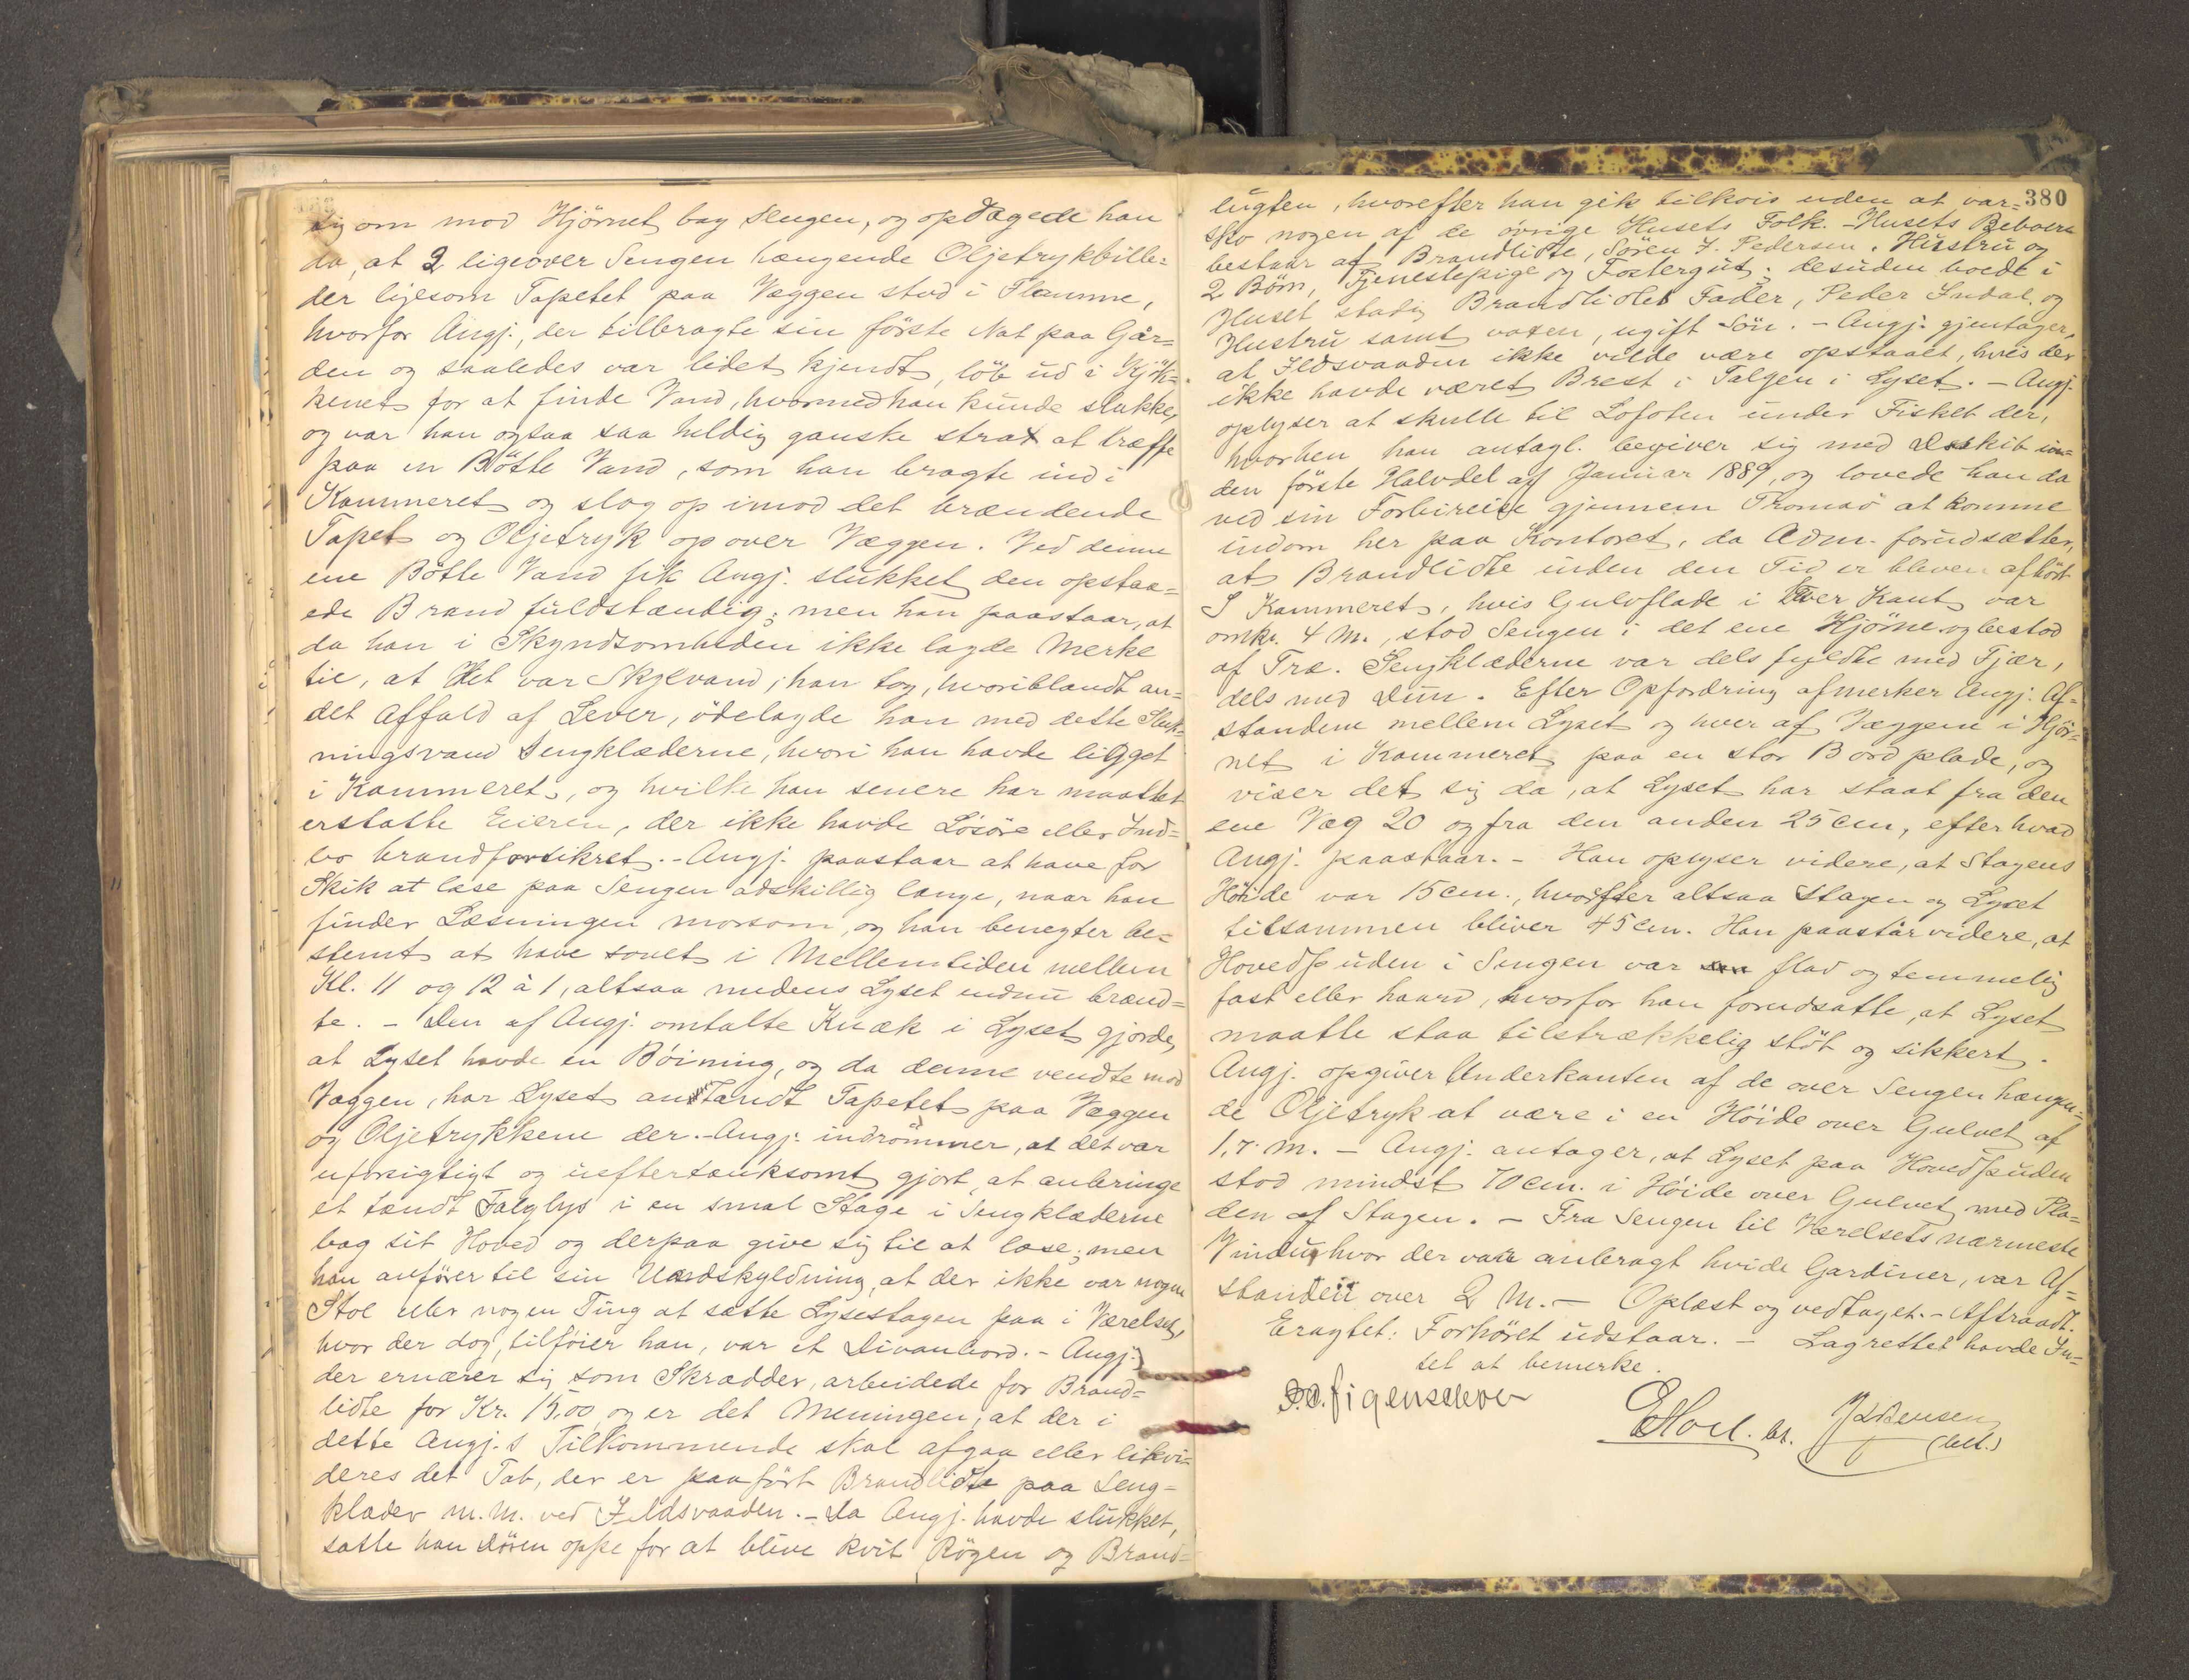 sig om mod Hjørnet bag Sengen, og opdagede han
da, at 2 ligeover Sengen hængende Oljetrykbille=
der ligesom Tapetet paa Væggen stod i Flamme,
hvorfor Angj., der tilbragte sin første Nat paa Går=
den og saaledes var lidet kjendt, löb ud i Kjök=
kenet for at finde Vand, hvormed han kunde slukke,
og var han ogsaa saa heldig ganske strax at træffe
paa en Bötte Vand, som han bragte ind i
Kammeret og slog op imod det brændende
Tapet og Oljetryk op over Væggen. Ved denne
ene Bötte Vand fik Angj. slukket den opstaa=
ede Brand fuldstændig; men han paastaar, at
da han i Skyndsomheden ikke lagde Merke
til, at det var Skylvand, han tog, hvoriblandt an=
det Affald af Lever, ödelagde han med dette Sluk=
ningsvand Sengklæderne, hvori han havde ligget
i Kammeret, og hvilke han senere har maattet
erstatte Eieren, der ikke havde Lösöre eller Ind=
bo brandforsikret. - Angj. paastaar at have for
Skik at læse paa Sengen adskillig længe, naar han
finder Læsningen morsom, og han benegter be=
stemt at have sovet i Mellemtiden mellem
Kl. 11 og 12 à 1, altsaa medens Lyset endnu brænd=
te. - Den af Angj. omtalte Knæk i Lyset gjorde,
at Lyset havde en Böining, og da denne vendte mod
Væggen, har Lyset antændt Tapetet paa Væggen
og Oljetrykkene der. - Angj. indrömmer, at det var
uforsigtigt og ueftertænksomt gjort, at anbringe
et tændt Talglys i en smal Stage i Sengklæderne
bag sit Hoved og derpaa give sig til at læse; men
han anförer til sin Undskyldning, at der ikke var nogen
Stol eller nogen Ting at sætte Lysestagen paa i Værelset,
hvor der dog, tilföier han, var et Divanbord. - Angj.,
der ernærer sig som Skrædder, arbeidede for Brand=
lidte for Kr. 15,00, og er det Meningen, at der i
dette Angj.s Tilkommende skal afgaa eller likvi=
deres det Tab, der er paafört Brandlidte paa Seng=
klæder m.m. ved Ildsvaaden. - Da Angj. havde slukket,
satte han Dören oppe for at blive kvit Rögen og Brand=
380
lugten, hvorefter han gik tilkois uden at var=
sko nogen af de övrige Husets Folk. - Husets Beboere
bestaar af Brandlidte, Sören J. Pedersen, Hustru og
2 Börn, Tjenestepige og Fostergut; desuden boede i
Huset stadig Brandlidtes Fader, Peder Indal, og
Hustru samt voxen, ugift Sön. - Angj. gjentager,
at Ildsvaaden ikke vilde være opstaaet, hvis der
ikke havde været Brest i Talgen i Lyset. - Angj.
oplyser at skulle til Lofoten under Fisket der,
hvorhen han antagl. begiver sig med Dskib in=
den förste Halvdel af Januar 1889, og lovede han da
ved sin Forbireise gjennem Tromsö at komme
indom her paa Kontoret, da Adm. forudsætter,
at Brandlidte inden den Tid er bleven afhört.
I Kammeret, hvis Gulvflade i hver Kant var
omkr. 4 M., stod Sengen i det ene Hjörne og bestod
af Træ. Sengklæderne var dels fyldte med Fjær,
dels med Dun. Efter Opfordring afmerker Angj. Af=
standene mellem Lyset og hver af Væggene i Hjör=
net i Kammeret paa en stor Bordplade, og
viser det sig da, at Lyset har staat fra den
ene Væg 20 og fra den anden 25 cm, efter hvad
Angj. paastaar. - Han oplyser videre, at Stagens
Höide var 15 cm., hvorefter altsaa Stagen og Lyset
tilsammen bliver 45 cm. Han paastår videre, at
Hovedpuden i Sengen var flad og temmelig
fast eller haard, hvorfor han forudsatte, at Lyset
maatte staa tilstrækkelig stöt og sikkert.
Angj. opgiver Underkanten af de over Sengen hængen=
de Oljetryk at være i en Höide over Gulvet af
1,7 M. - Angj. antager, at Lyset paa Hovedpuden
stod mindst 70 cm. i Höide over Gulvet med Fla=
den af Stagen. - Fra Sengen til Værelsets nærmeste
Vindu, hvor der var anbragt hvide Gardiner, var Af=
standen over 2 M. - Oplæst og vedtaget. - Aftraadt.
Eragtet: Forhöret udstaar. - Lagrettet havde In=
tet at bemerke.
EHoel. bs.
(bett.)